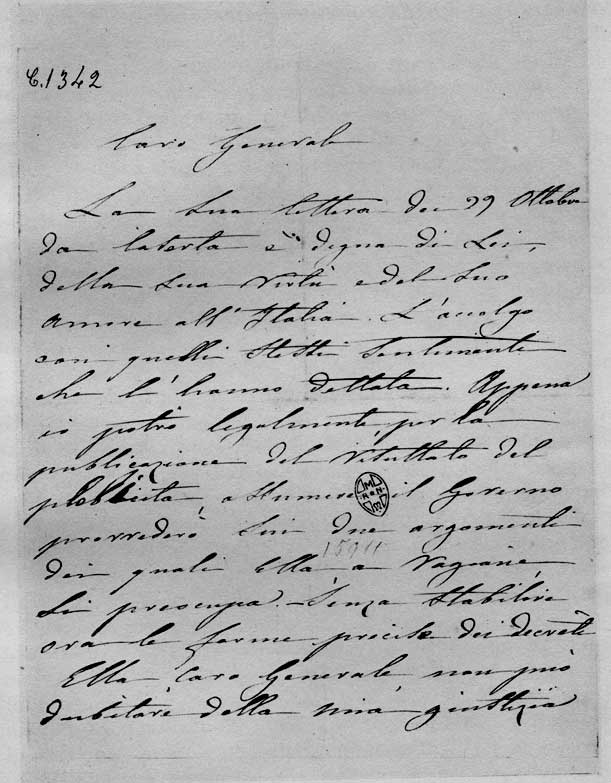 C. 1342
Caro Generale
La sua lettera dei 29 Ottobre
da Caserta è degna di Lei,
della sua virtù e del suo
amore all'Italia. L'accolgo
con quelli stessi sentimenti
che l'hanno dettata. Appena
io potrò legalmente per la
publicazione del risultato del
plebiscito, assumere il Governo
provvederò sui due argomenti
dei quali Ella a ragione
si preoccupa. Senza stabilire
ora le forme precise dei decreti
Ella, caro Generale non può
dubitare della mia giustizia